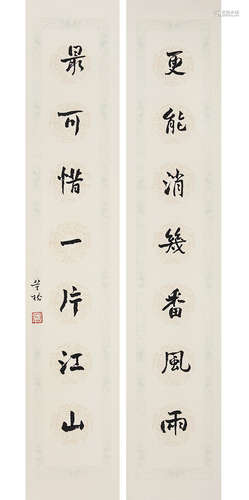 更能消幾番風雨
最可惜一片江山